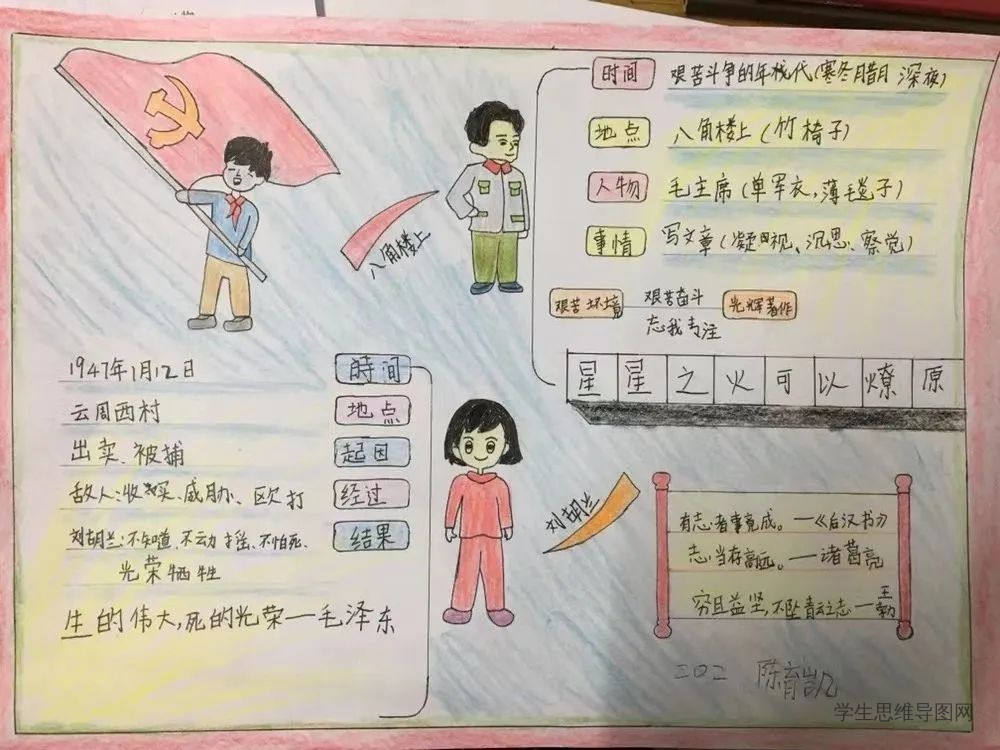 时间 艰苦斗争的年代(寒冬腊月 深夜)
地点 八角楼上(竹椅子)
人物 毛主席(单军衣,薄毛毯子)
事情 写文章(凝视、沉思、察觉)
艰苦环境 艰苦奋斗 光辉著作
忘我专注
八角楼上
星星之火可以燎原
1947年1月12日 時间
云周西村 地点
出卖、被捕 起因
敌人:收买、威胁、殴打 经过
刘胡兰:不知道、不动摇、不怕死、 结果
光荣牺牲
生的伟大,死的光荣一毛泽东
刘胡兰
有志者事竟成。—《后汉书》
志当存高远。—诸葛亮
穷且益坚,不坠青云之志—王勃
二0二 陈育凯
学生思维导图网